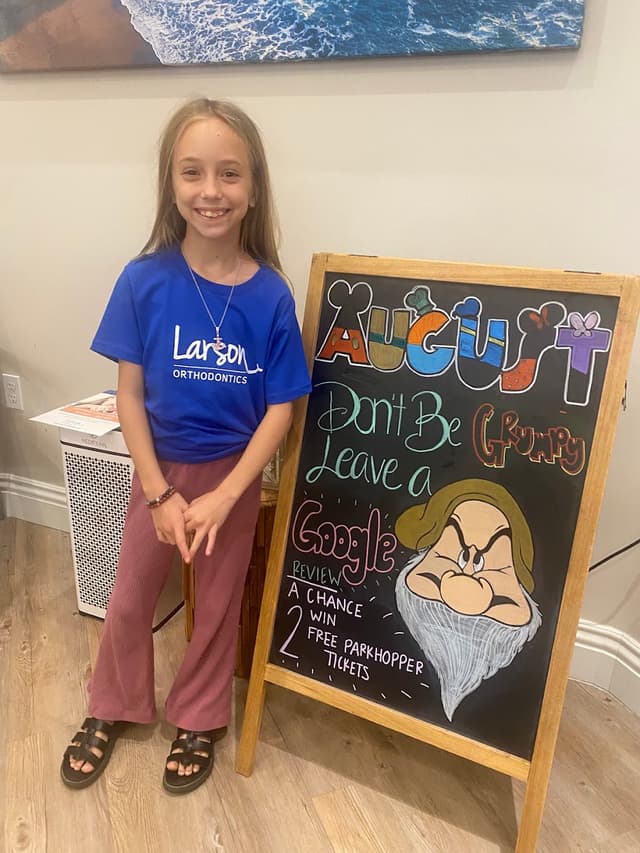 Larson
ORTHODONTICS
MEDIFY AIR
AUGUST
Don't Be GRUMPY
Leave a
Google
REVIEW
A CHANCE
WIN
2 FREE PARKHOPPER
TICKETS